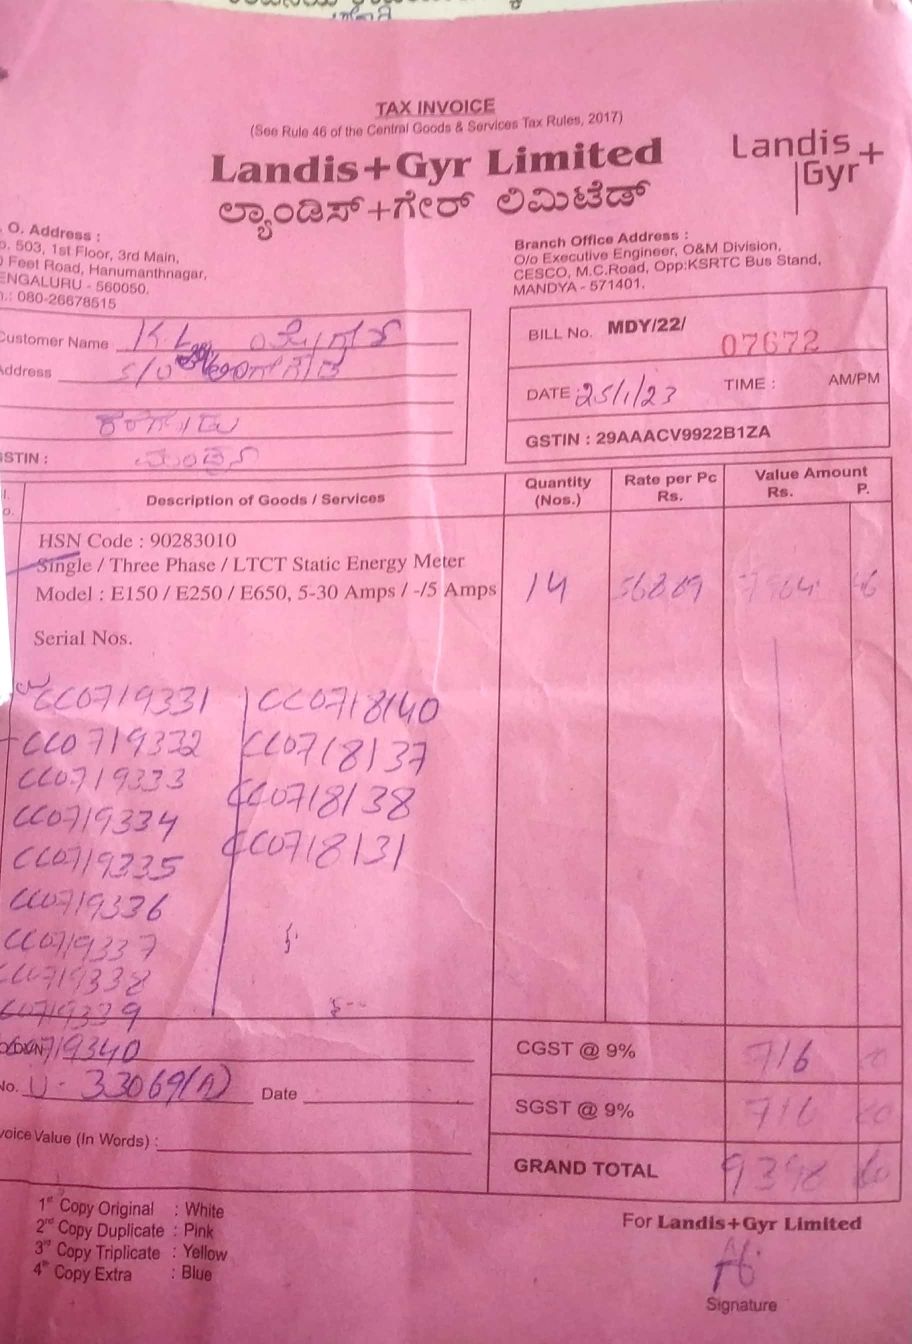 TAX INVOICE
(See Rule 46 of the Central Goods & Services Tax Rules, 2017)
Landis+Gyr Limited
ಲ್ಯಾಂಡಿಸ್+ಗೇರ್ ಲಿಮಿಟೆಡ್
Landis
Gyr+
. O. Address :
o. 503, 1st Floor, 3rd Main,
0 Feet Road, Hanumanthnagar,
ENGALURU - 560050.
n.: 080-26678515
Branch Office Address :
O/o Executive Engineer, O&M Division,
CESCO, M.C.Road, Opp:KSRTC Bus Stand,
MANDYA - 571401.
Customer Name
Address S/o
STIN :
BILL No. MDY/22/ 07672
DATE : 25/1/23 TIME : AM/PM
GSTIN : 29AAACV9922B1ZA
l. o. Description of Goods / Services Quantity (Nos.) Rate per Pc Rs. Value Amount Rs. P.
HSN Code : 90283010
Single / Three Phase / LTCT Static Energy Meter
Model : E150 / E250 / E650, 5-30 Amps / -/5 Amps 14 568.89 7964 46
Serial Nos.
CC0719331 CC0718140
CC0719332 CC0718137
CC0719333 CC0718138
CC0719334 CC0718131
CC0719335
CC0719336
CC0719337
CC0719338
CC0719339
0719340
CGST @ 9% 716
No. U-33069(A) Date
SGST @ 9% 716
voice Value (In Words) :
GRAND TOTAL 9398
1st Copy Original : White
2nd Copy Duplicate : Pink
3rd Copy Triplicate : Yellow
4th Copy Extra : Blue
For Landis+Gyr Limited
Signature